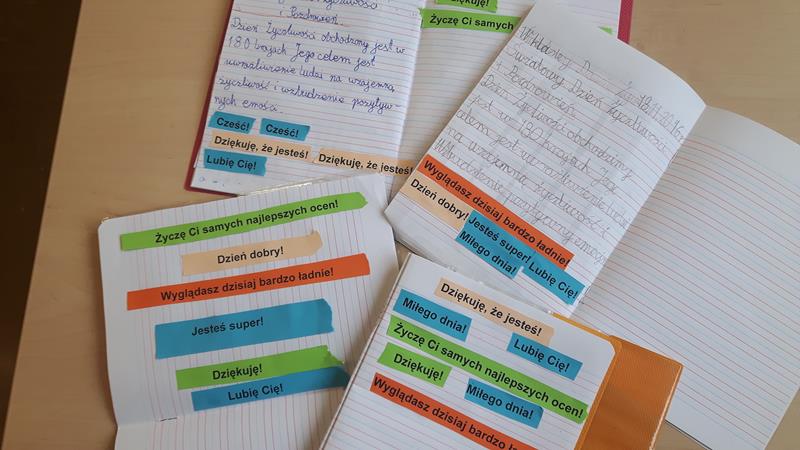 Życzliwości
i Pozdrowień.
Dzień Życzliwości obchodzony jest w
180 krajach Jego celem jest
uwrażliwienie ludzi na wzajemną
życzliwość i wzbudzenie pozytyw-
nych emocji.
Cześć!
Cześć!
Dziękuję, że jesteś!
Dziękuję, że jesteś!
Lubię Cię!
Dziękuję!
Życzę Ci samych
18.11.2016r.
Światowy Dzień Życzliwości
i Pozdrowień
Dzień Życzliwości obchodzony
jest w 180 krajach Jego
celem jest uwrażliwienie ludzi
na wzajemną życzliwość i
wzbudzenie pozytywnych emocji
Wyglądasz dzisiaj bardzo ładnie!
Dzień dobry!
Jesteś super!
Lubię Cię!
Miłego dnia!
Życzę Ci samych najlepszych ocen!
Dzień dobry!
Wyglądasz dzisiaj bardzo ładnie!
Jesteś super!
Dziękuję!
Lubię Cię!
Dziękuję, że jesteś!
Miłego dnia!
Lubię Cię!
Życzę Ci samych najlepszych ocen!
Dziękuję!
Miłego dnia!
Wyglądasz dzisiaj bardzo ła